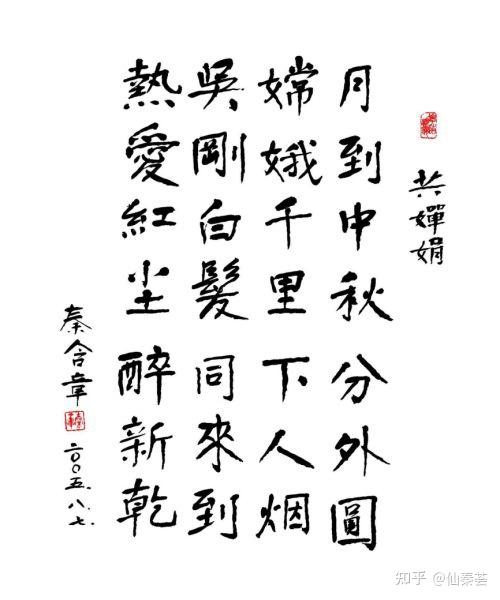 共嬋娟
月到中秋分外圓
嫦娥千里下人烟
吳剛白髮同來到
熱愛紅尘醉新乾
秦含章
二〇〇五.八.七.
知乎 @仙秦荟